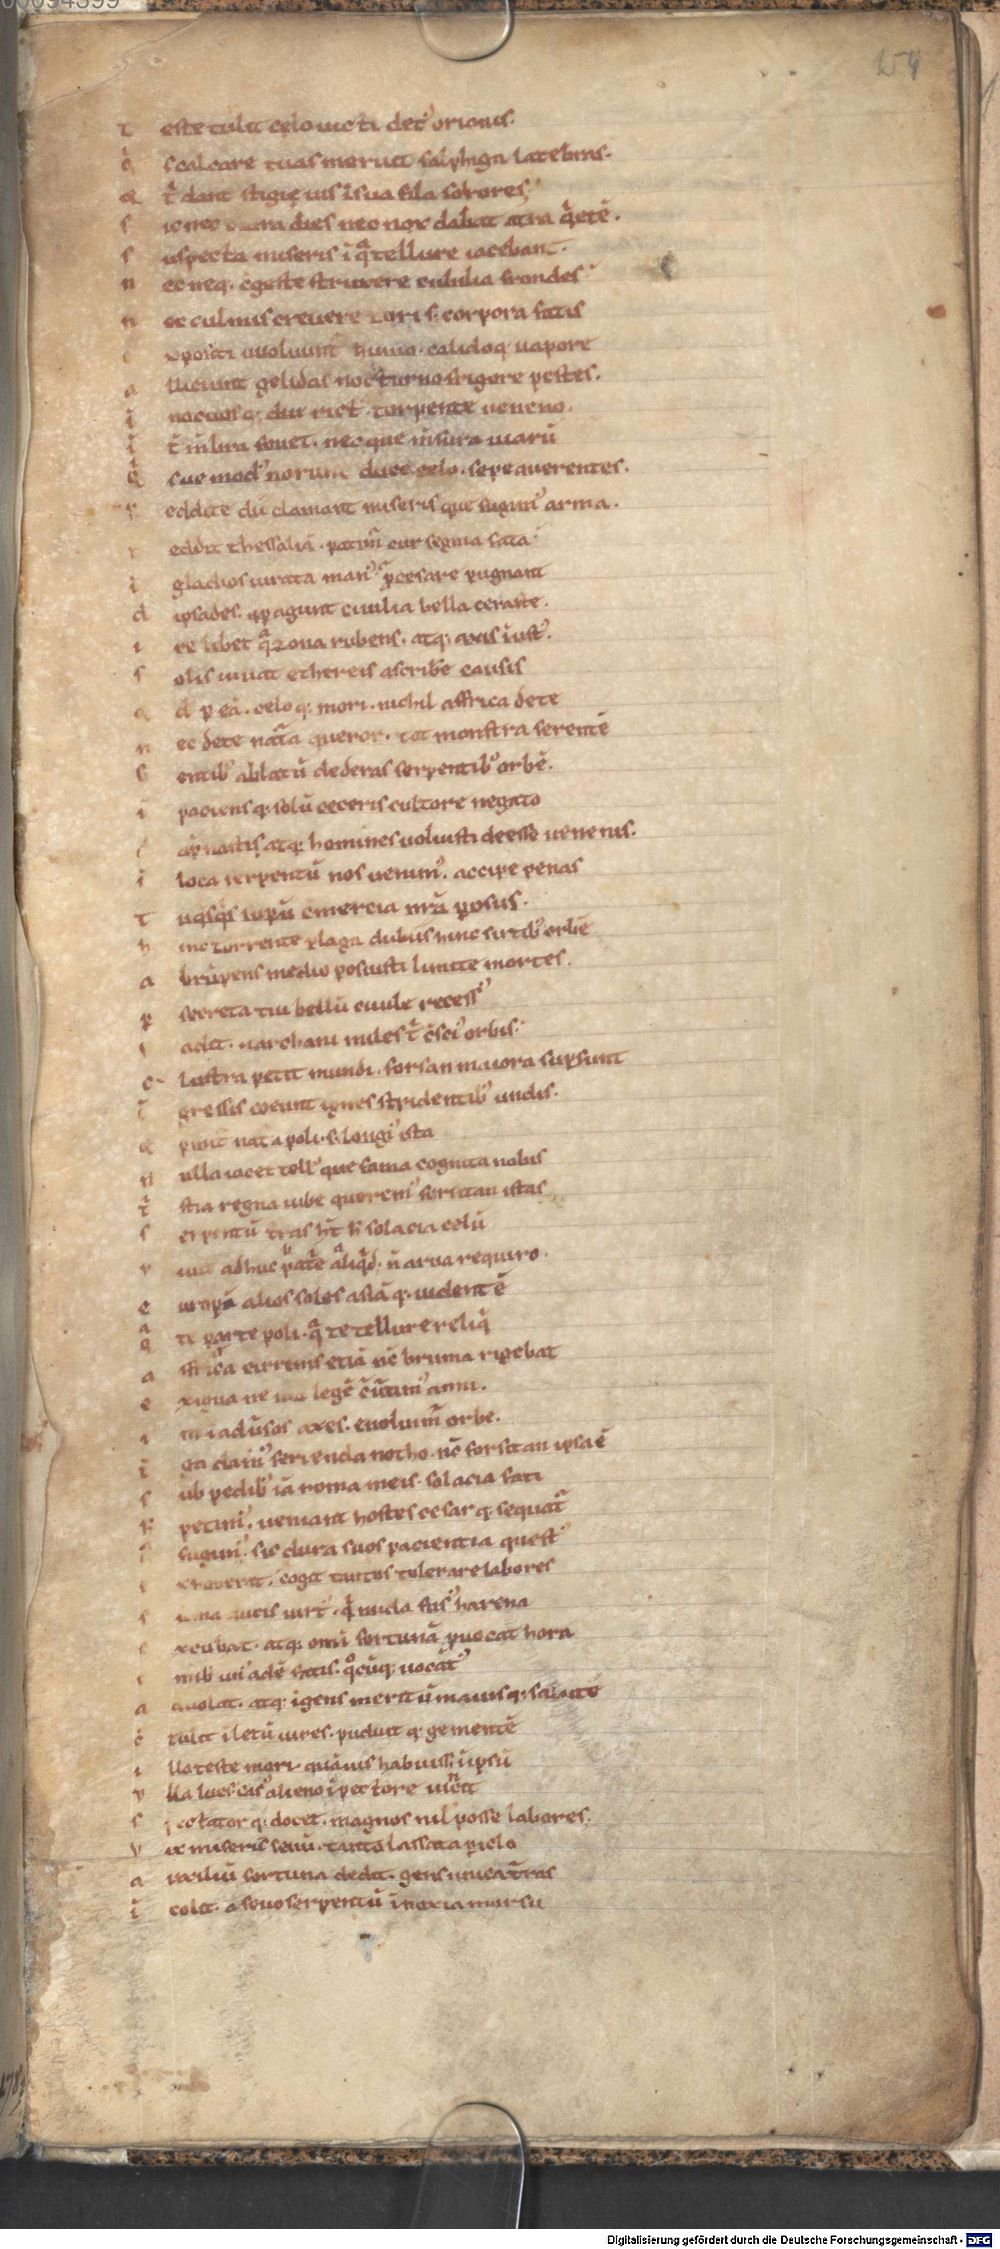 T este tulit celo uicti decꝰ orionis.
q̊ s calcare tuas metuat salphiga latebras.
& t̄ dant stigię ius īsua fila sorores.
s ic nec clara dies nec nox dabat atra q̄etē.
s uspecta miseris ī q̄ tellure iacebant.
n ec neq; ogeste struxere cubilia frondes
n ec culmis creuere tori s; corpora fatis
e xpositi uoluunt̄ humo. calidoq; uapore
a lliciunt gelidas nocturno frigore pestes.
ī nocuosq; diu rict̄. torpente ueneno.
ī t̄ m̄bra fouet. nec que m̄sura uiarū
q̄ sue modꝰ norunt duce celo. sepe querentes.
r eddite dii clamant miseris que fugimꝰ arma.
r eddit thessaliā. patim̄ cur segnia fata
ī gladios iurata manꝰ ꝓ cesare pugnant
d ipsades. ꝗꝑagunt ciuilia bella ceraste.
i re libet q̄ zona rubens. atq; axis īustꝰ.
s olis iuuat ethereis ascribe causis
q d ꝑ eā. celo q; mori. nichil affrica dete
n ec dete nat̄a queror. tot monstra ferentē
g entibꝰ ablatū dederas serpentibꝰ orbē.
ī paciensq; solū cereris cultore negato
d āpnastis atq; homines uoluisti deesse uenenis.
ī loca serpentū nos uenimꝰ. accipe penas
T uq̇sq̇s supū cmercia nr̄a ꝑosus.
h inc torrente plaga dubiis hinc sirtibꝰ orbē
a brūpens medio posuisti limite mortes.
ꝑ secreta tui bellū ciuile recessꝰ
u adit. & archani miles t̄ cscī orbis.
c laustra petit mundi. forsan maiora supsunt
ī gressis coeunt ignes stridentibꝰ undis.
& pmit̄ nata poli. s; longiꝰ ista
n ulla iacet tellꝰ que fama cognita nobis
t̄ stia regna iube queremꝰ forsitan istas
s erpentū t̄ras ht̄ h̄ solacia celū
v iuit adhuc pat̄e aliq̄d. n̄ arua requiro.
e uropā alios soles asiā q; uidentē
q̄ ti parte poli. q̄ te tellure reliq̄
a ffrica cirrenis etiā nc̄ bruma rigebat
e xigua ne uia legē c̄uertimꝰ anni.
i m̄ ī aduersos axes. euoluim̄ orbe.
t̄ ga damꝰ ferienda notho. nc̄ forsitan ipsa ē
s ub pedibꝰ iā roma meis. solacia fati
h̄ petimꝰ. ueniant hostes cesar q; sequat̄
q̄ fugimꝰ. sic dura suos paciencia questꝰ
e xonerat. cogit tantos tolerare labores
s uma ducis uirt̄ .q̄ nuda fusꝰ harena
e xcubat. atq; omī fortunā ꝓuocat hora
o mibꝰ unꝰ adē fatis. q̊cūq; uocatꝰ
a duolat. atq; īgens meritū maiusq; salute
c̄ tulit ī letū uires. puduit q; gementē
i llo teste mori quāuis habuiss; īpsū
v lla lues casꝰ alieno ī pectore uinc̄it
s pectator q; docet. magnos nil posse labores.
v ix miseris serū. tanto lassata ꝑiclo
a uxiliū fortuna dedit. gens unica t̄ras
ī colit. a seuo serpentū īnoxia morsu
Digitalisierung gefördert durch die Deutsche Forschungsgemeinschaft - DFG